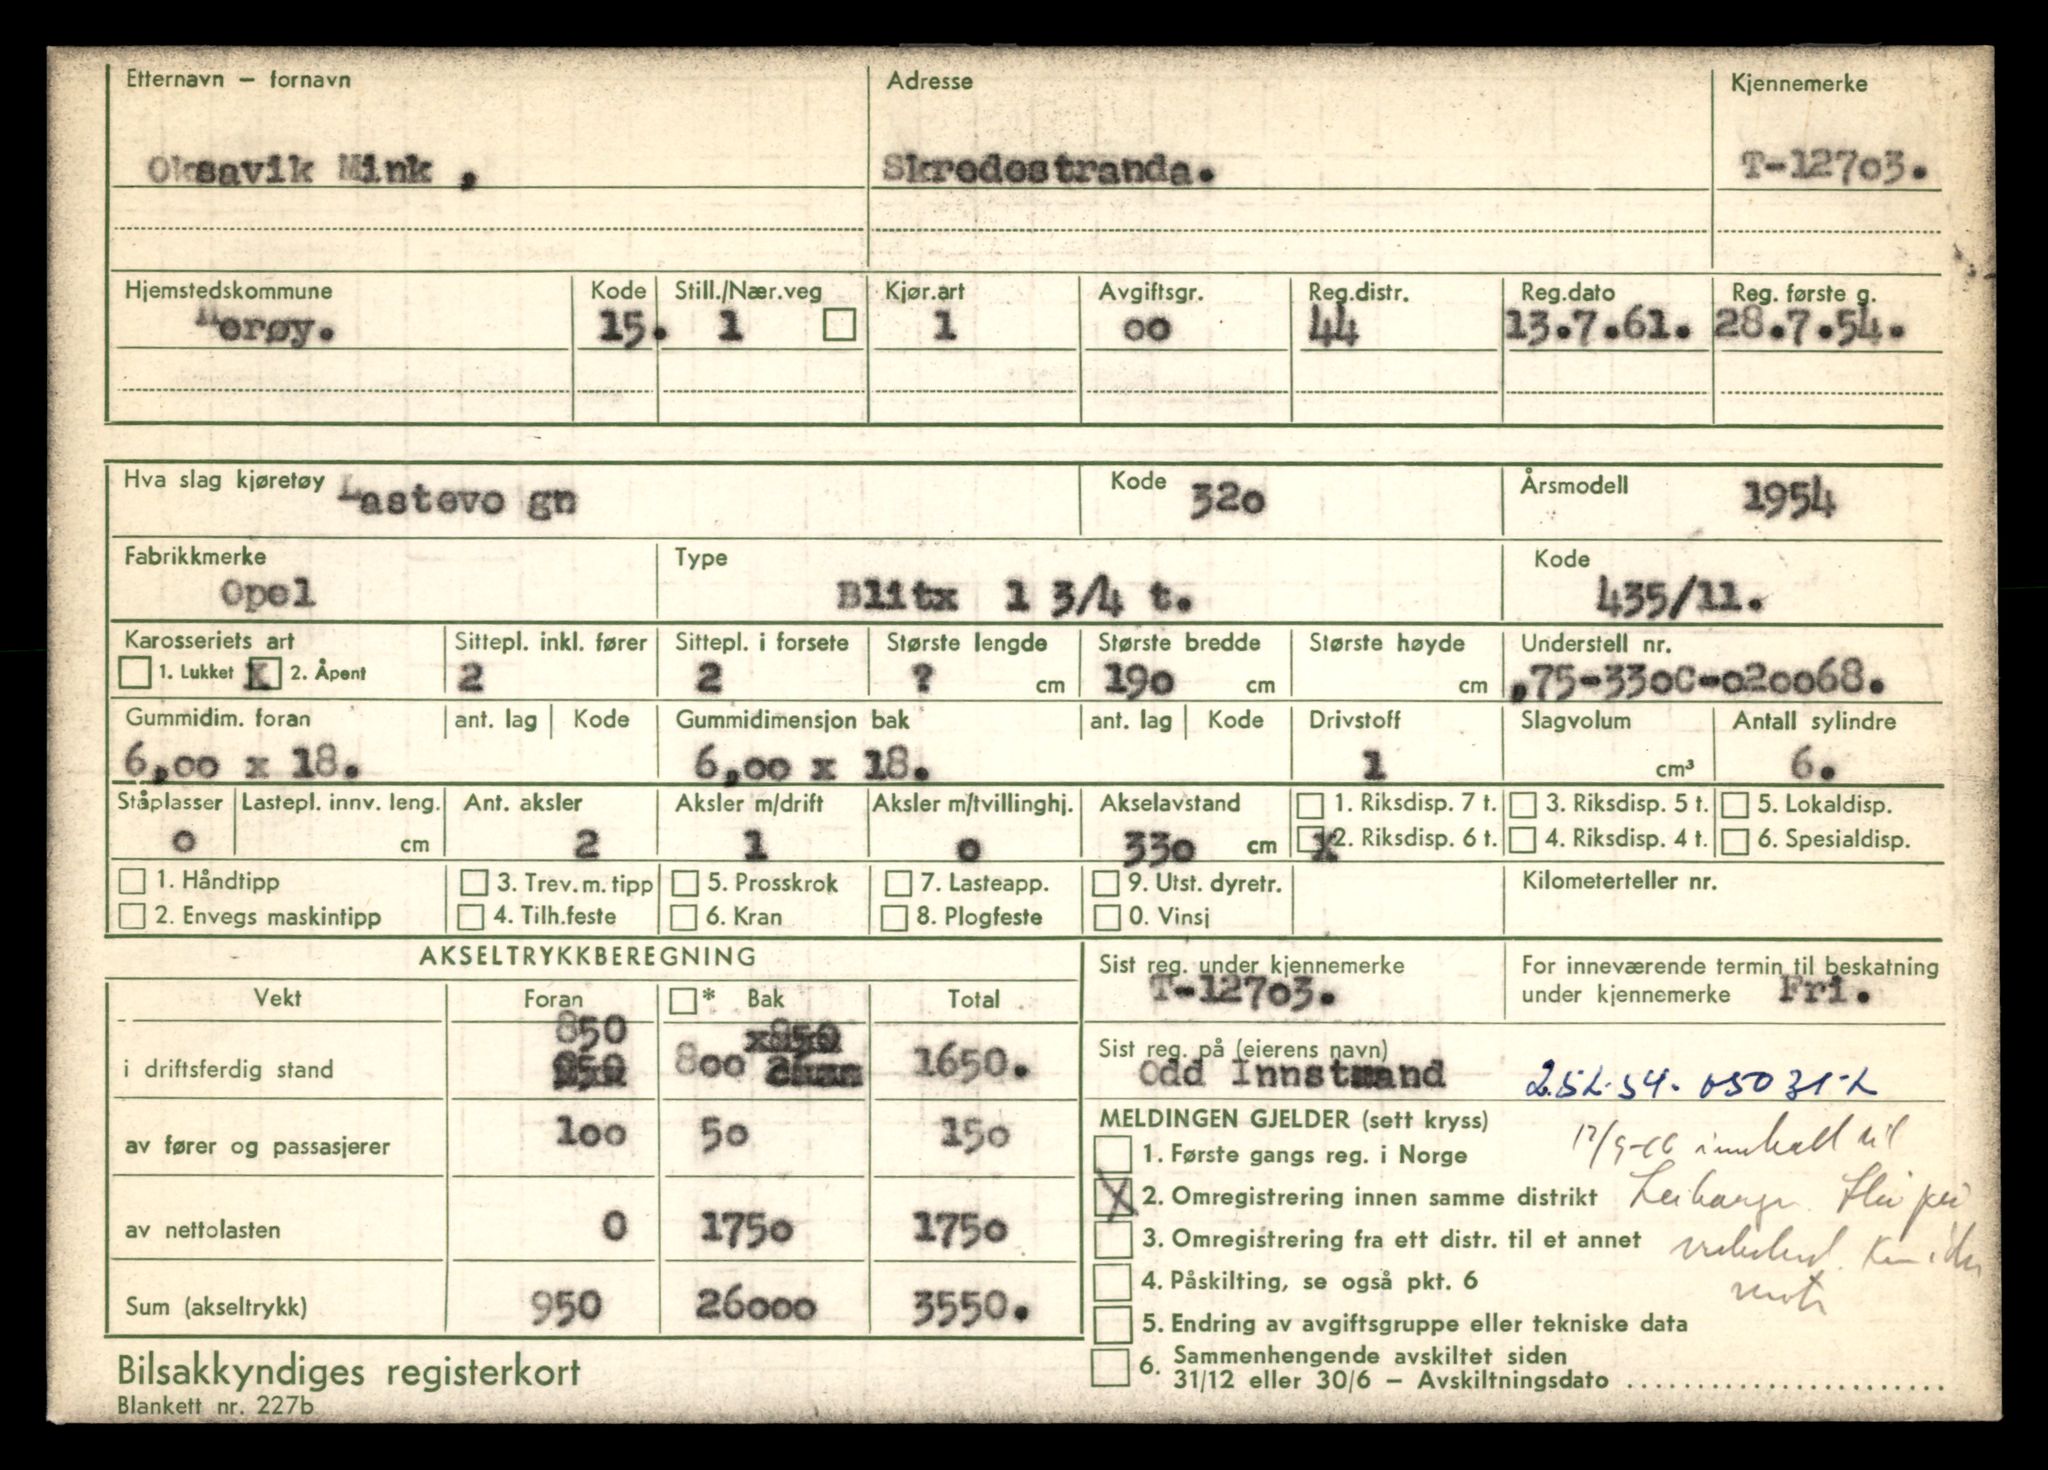 Etternavn – fornavn Adresse Kjennemerke
Oksavik Mink , Skredestranda. T-12703.
Hjemstedskommune Kode Still./Nær.veg Kjør.art Avgiftsgr. Reg.distr. Reg.dato Reg. første g.
Herøy. 15. 1 1 oo 44 13.7.61. 28.7.54.
Hva slag kjøretøy Lastevo gn Kode 32o Årsmodell 1954
Fabrikkmerke Type Kode
Opel Blitx 1 3/4 t. 435/11.
Karosseriets art Sittepl. inkl. fører Sittepl. i forsete Største lengde Største bredde Største høyde Understell nr.
1. Lukket X 2. Åpent 2 2 ? cm 19o cm cm ,75-33oC-o2oo68.
Gummidim. foran ant. lag Kode Gummidimensjon bak ant. lag Kode Drivstoff Slagvolum Antall sylindre
6,oo x 18. 6,oo x 18. 1 cm³ 6.
Ståplasser Lastepl. innv. leng. Ant. aksler Aksler m/drift Aksler m/tvillinghj. Akselavstand 1. Riksdisp. 7 t. 3. Riksdisp. 5 t. 5. Lokaldisp.
o cm 2 1 o 33o cm X 2. Riksdisp. 6 t. 4. Riksdisp. 4 t. 6. Spesialdisp.
1. Håndtipp 3. Trev. m. tipp 5. Prosskrok 7. Lasteapp. 9. Utst. dyretr. Kilometerteller nr.
2. Envegs maskintipp 4. Tilh.feste 6. Kran 8. Plogfeste 0. Vinsj
AKSELTRYKKBEREGNING
Vekt Foran * Bak Total
850
i driftsferdig stand 8oo 1650.
av fører og passasjerer 1oo 5o 15o
av nettolasten 0 175o 175o
Sum (akseltrykk) 950 26ooo 3550.
Sist reg. under kjennemerke For inneværende termin til beskatning
T-127o3. under kjennemerke Fri.
Sist reg. på (eierens navn)
Odd Innstrand 2.5L-54- 05031-L
MELDINGEN GJELDER (sett kryss)
1. Første gangs reg. i Norge
X 2. Omregistrering innen samme distrikt
3. Omregistrering fra ett distr. til et annet
4. Påskilting, se også pkt. 6
5. Endring av avgiftsgruppe eller tekniske data
6. Sammenhengende avskiltet siden
31/12 eller 30/6 – Avskiltningsdato
Bilsakkyndiges registerkort
Blankett nr. 227b